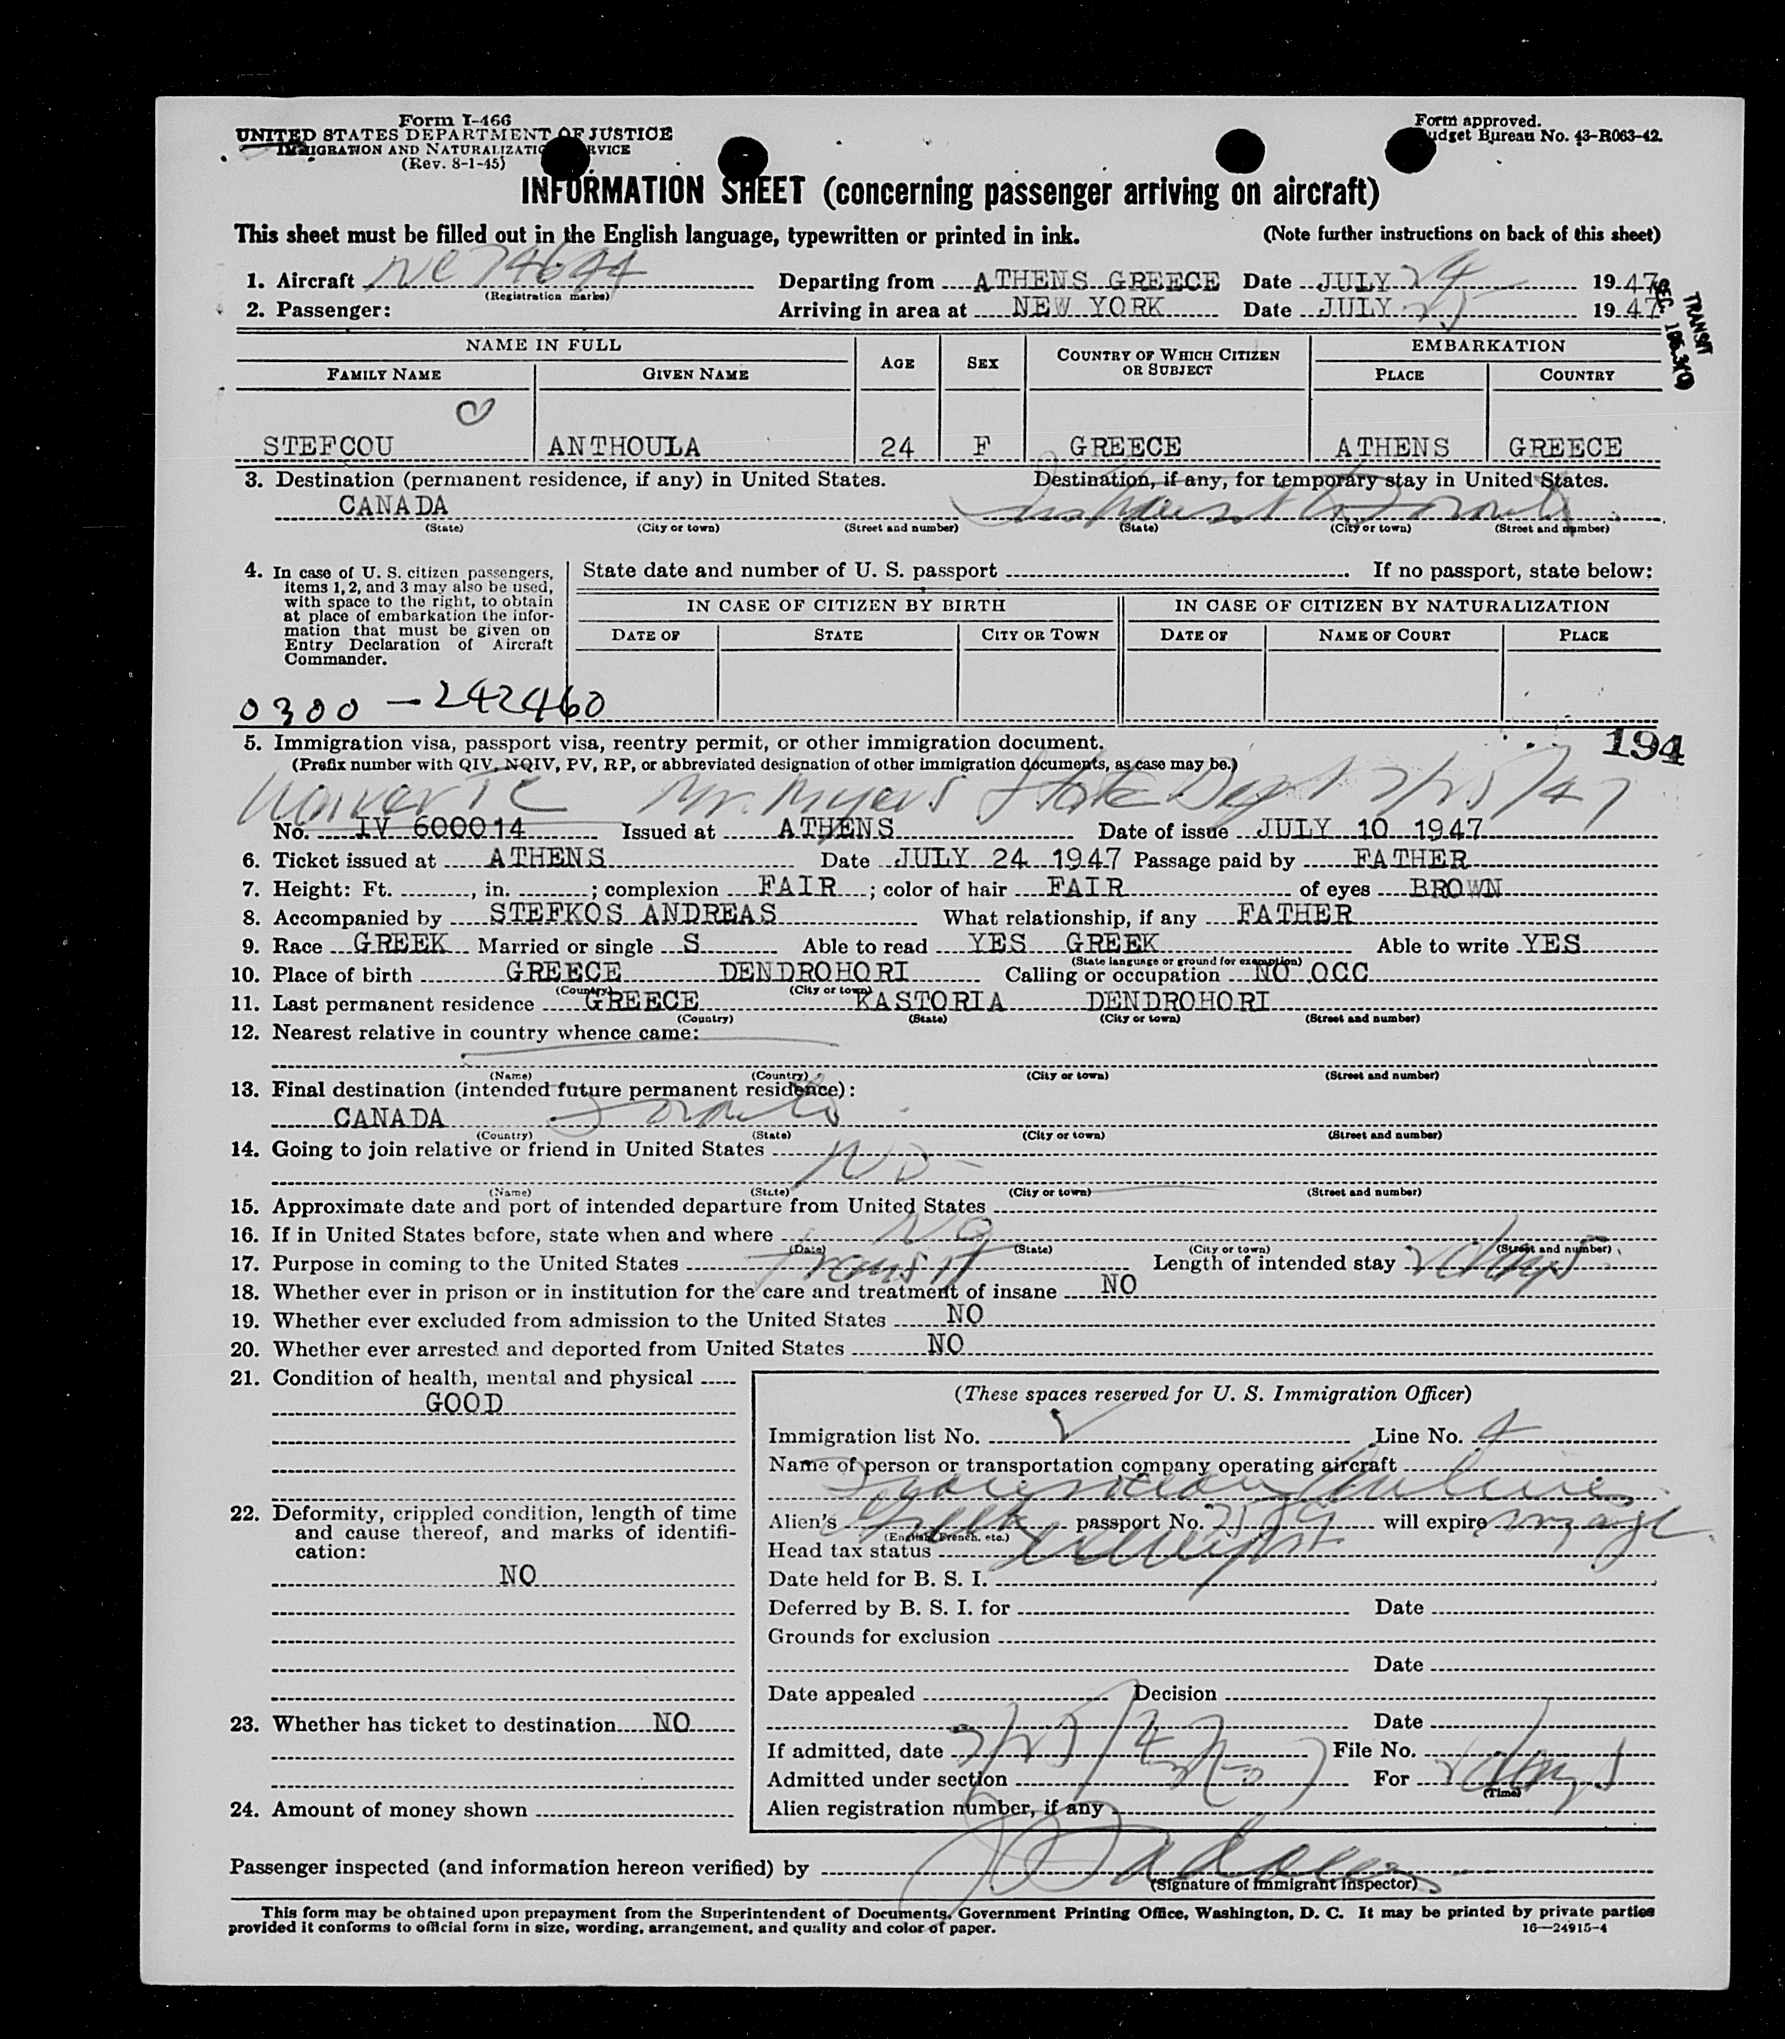 Form I-466
UNITED STATES DEPARTMENT OF JUSTICE
IMMIGRATION AND NATURALIZATION SERVICE
(Rev. 8-1-45)
Form approved.
Budget Bureau No. 43-R063-42.
INFORMATION SHEET (concerning passenger arriving on aircraft)
This sheet must be filled out in the English language, typewritten or printed in ink. (Note further instructions on back of this sheet)
1. Aircraft NC 74644 Departing from ATHENS GREECE Date JULY 24 1947
(Registration marks)
2. Passenger: Arriving in area at NEW YORK Date JULY 25 1947
TRANSIT
SEC
NAME IN FULL EMBARKATION
FAMILY NAME GIVEN NAME AGE SEX COUNTRY OF WHICH CITIZEN OR SUBJECT PLACE COUNTRY
STEFCOU ANTHOULA 24 F GREECE ATHENS GREECE
3. Destination (permanent residence, if any) in United States. Destination, if any, for temporary stay in United States.
CANADA In transit to Toronto
(State) (City or town) (Street and number) (State) (City or town) (Street and number)
4. In case of U. S. citizen passengers, items 1, 2, and 3 may also be used, with space to the right, to obtain at place of embarkation the information that must be given on Entry Declaration of Aircraft Commander.
State date and number of U. S. passport . If no passport, state below:
IN CASE OF CITIZEN BY BIRTH IN CASE OF CITIZEN BY NATURALIZATION
DATE OF STATE CITY OR TOWN DATE OF NAME OF COURT PLACE
0300 - 242460
194
5. Immigration visa, passport visa, reentry permit, or other immigration document.
(Prefix number with QIV, NQIV, PV, RP, or abbreviated designation of other immigration documents, as case may be.)
Waiver TC Mr. Myers State Dept 7/25/47
No. IV 600014 Issued at ATHENS Date of issue JULY 10 1947
6. Ticket issued at ATHENS Date JULY 24 1947 Passage paid by FATHER
7. Height: Ft. , in. ; complexion FAIR ; color of hair FAIR of eyes BROWN
8. Accompanied by STEFKOS ANDREAS What relationship, if any FATHER
9. Race GREEK Married or single S Able to read YES GREEK Able to write YES
(State language or ground for exemption)
10. Place of birth GREECE DENDROHORI Calling or occupation NO OCC
(Country) (City or town)
11. Last permanent residence GREECE KASTORIA DENDROHORI
(Country) (State) (City or town) (Street and number)
12. Nearest relative in country whence came:
(Name) (Country) (City or town) (Street and number)
13. Final destination (intended future permanent residence):
CANADA Toronto
(Country) (State) (City or town) (Street and number)
14. Going to join relative or friend in United States NO
(Name) (State) (City or town) (Street and number)
15. Approximate date and port of intended departure from United States
16. If in United States before, state when and where No
(Date) (State) (City or town) (Street and number)
17. Purpose in coming to the United States transit Length of intended stay 2 days
18. Whether ever in prison or in institution for the care and treatment of insane NO
19. Whether ever excluded from admission to the United States NO
20. Whether ever arrested and deported from United States NO
21. Condition of health, mental and physical
GOOD
22. Deformity, crippled condition, length of time and cause thereof, and marks of identification:
NO
23. Whether has ticket to destination NO
24. Amount of money shown
(These spaces reserved for U. S. Immigration Officer)
Immigration list No. Line No. 4
Name of person or transportation company operating aircraft
Alien's Greek passport No. will expire
(English, French, etc.)
Head tax status
Date held for B. S. I.
Deferred by B. S. I. for Date
Grounds for exclusion
Date
Date appealed Decision
Date
If admitted, date 7/25/47 File No.
Admitted under section For 2 days
(Time)
Alien registration number, if any
Passenger inspected (and information hereon verified) by
(Signature of immigrant inspector)
This form may be obtained upon prepayment from the Superintendent of Documents, Government Printing Office, Washington, D. C. It may be printed by private parties
provided it conforms to official form in size, wording, arrangement, and quality and color of paper. 16—24915-4